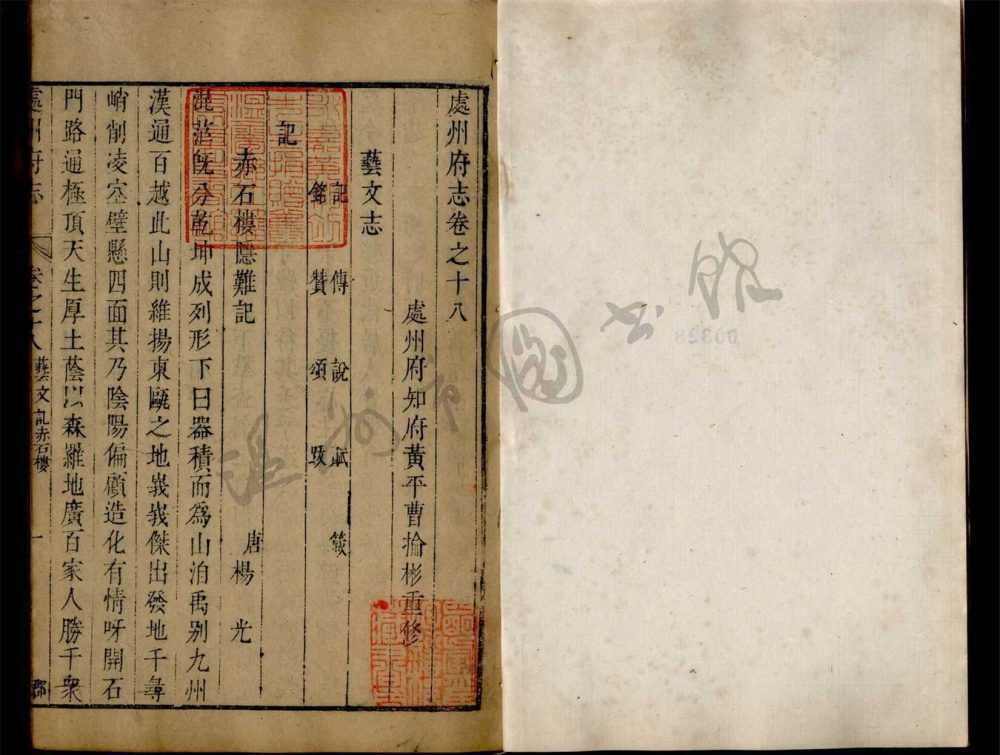 處州府志卷之十八
處州府知府黃平曹掄彬重修
藝文志
記 傳 說 賦 箴
銘 贊 頌 跋
記
赤石樓隱難記 唐 楊光
混茫既分乾坤成列形下曰器積而爲山洎禹别九州
漢通百越此山則維揚東甌之地峩峩傑出發地千尋
峭削凌空壁懸四面其乃陰陽偏顧造化有情呀開石
門路通極頂天生厚土蔭以森羅地廣百家人勝千衆
處州府志
卷之十八
藝文 記赤石樓
一
郡
温州市圖書館